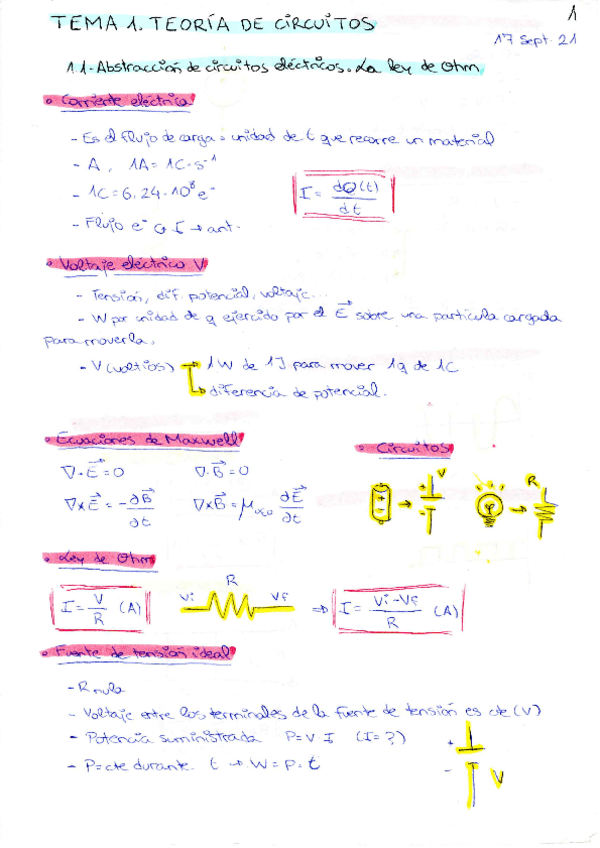 1
TEMA 1. TEORÍA DE CIRCUITOS
17 Sept. 21
1.1- Abstracción de circuitos eléctricos. La ley de Ohm
• Corriente eléctrica
- Es el flujo de carga x unidad de t que recorre un material
- A, 1A = 1C·s⁻¹
- 1C = 6,24·10⁸ e⁻
I = dQ(t)/dt
- Flujo e⁻ → ant.
• Voltaje eléctrico V
- Tensión, dif. potencial, voltaje...
- W por unidad de q ejercido por el E⃗ sobre una partícula cargada
para moverla.
- V (voltios) → 1W de 1J para mover 1q de 1C
↳ diferencia de potencial.
• Ecuaciones de Maxwell
• Circuitos
∇·E⃗ = 0 ∇·B⃗ = 0
∇×E⃗ = -∂B⃗/∂t ∇×B⃗ = μ₀ε₀ ∂E⃗/∂t
+ - → + - V → R
• Ley de Ohm
I = V/R (A) Vi R Vf ⇒ I = Vi-Vf/R (A)
• Fuente de tensión ideal
- R nula
- Voltaje entre los terminales de la fuente de tensión es cte (V)
- Potencia suministrada P = V·I (I = ?)
- P = cte durante t → W = P·t
+ - V